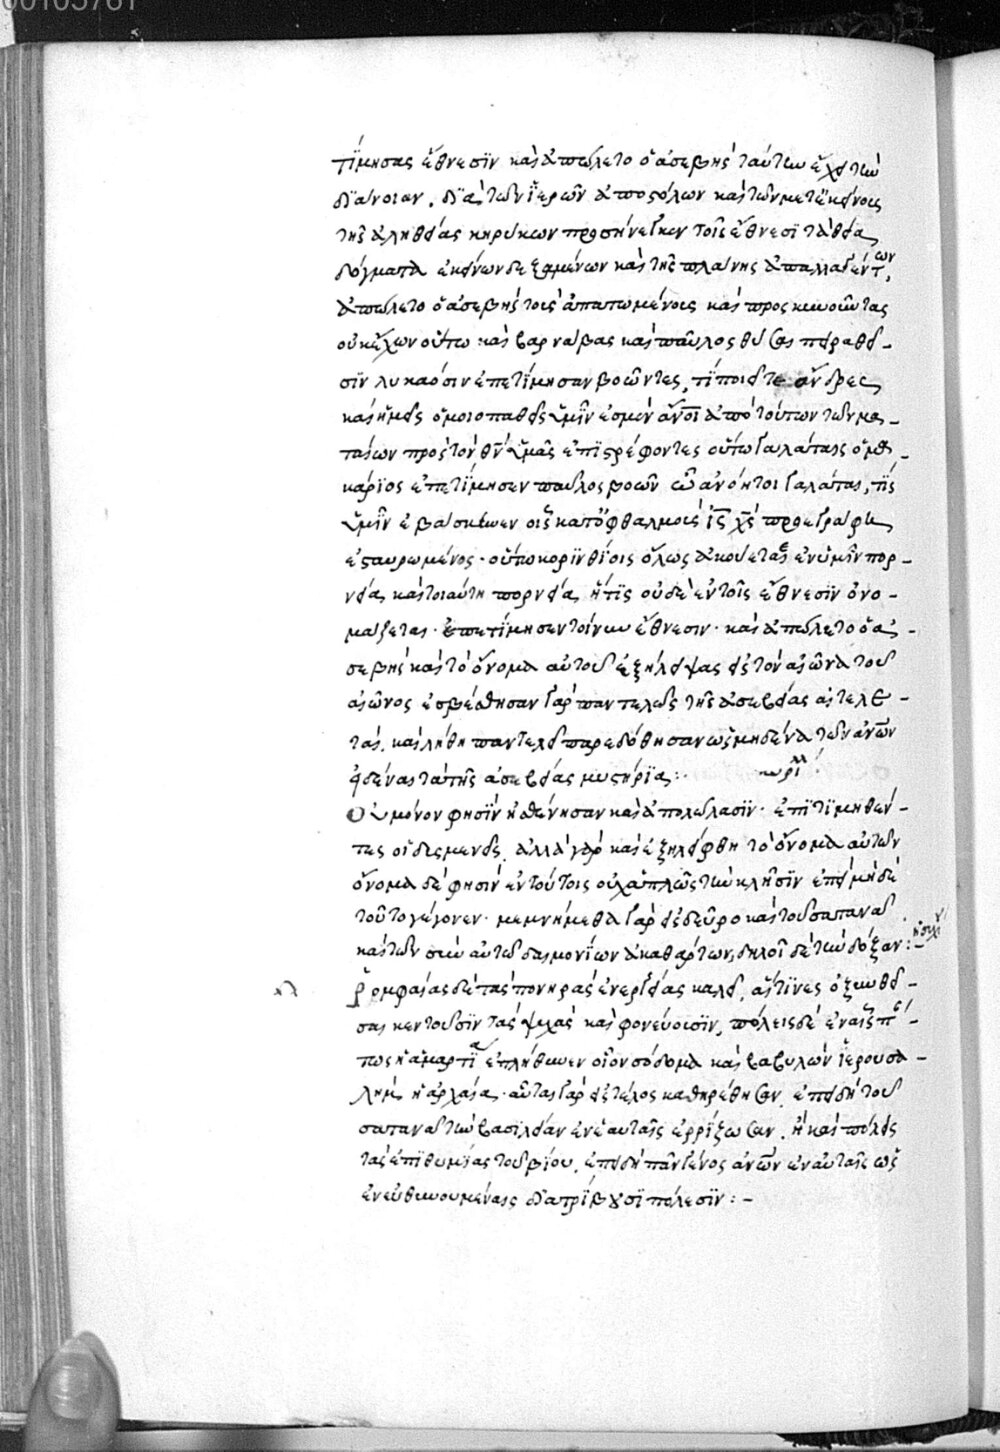 00105781
τίμησας ἔθνεσϊν καὶ ἀπώλετο ὁ ἀσεβὴς ταύτην ἔχει τὴν
δϊάνοιαν. δϊὰ τῶν ϊερῶν ἀποστόλων καὶ τῶν μετ' ἐκείνοις
τῆς ἀληθείας κηρύκων προσήνεγκεν τοῖς ἔθνεσϊ τὰ θεῖα
δόγματα ἐκείνων δεξαμένων καὶ τῆς πλάνης ἀπαλλαγέντων,
ἀπώλετο ὁ ἀσεβὴς τοῖς ἀπατωμένοις καὶ προσκυνοῦντας
οὐκ ἔχων οὕτω καὶ βαρνάβας καὶ παῦλος θῦσαι πειραθεῖ-
σϊν λυκαόσιν ἐπετίμησαν βοῶντες, τί ποιεῖτε ἄνδρες
καὶ ἡμεῖς ὁμοιοπαθεῖς ὑμῖν ἐσμὲν ἄνοι ἀπὸ τούτων τῶν μα-
ταίων πρὸς τὸν θν ὑμᾶς ἐπιστρέφοντες οὕτω γαλάταις ὁ μα-
κάριος ἐπετίμησεν παῦλος βοῶν ὦ ἀνόητοι γαλάται, τίς
ὑμῖν ἐβάσκηνεν οἷς κατ' ὀφθαλμοὺς ις χς προεγράφη
ἐσταυρωμένος· οὕτω κορινθίοις ὅλως ἀκούεται ἐν ὑμῖν πορ-
νεία, καὶ τοιαύτη πορνεία, ἥτις οὐδὲ ἐν τοῖς ἔθνεσϊν ὀνο-
μάζεται· ἐπετίμησεν τοίνυν ἔθνεσιν· καὶ ἀπώλετο ὁ ἀ-
σεβὴς καὶ τὸ ὄνομα αὐτοῦ ἐξήλειψας εἰς τὸν αἰῶνα τοῦ
αἰῶνος ἐσβέσθησαν γὰρ παντελῶς τῆς ἀσεβείας αἱ τελε-
ταί. καὶ λήθη παντελεῖ παρεδόθησαν ὡς μηδένα τῶν ἀνων
εἰδέναι τὰ τῆς ἀσεβείας μυστήρϊα:· κυρίλλ:
Οὐ μόνον φησϊν ἠσθένησαν καὶ ἀπολώλασϊν· ἐπιτιμηθέν-
τες οἱ δυσμενεῖς. ἀλλὰ γὰρ καὶ ἐξηλείφθη τὸ ὄνομα αὐτῶν
ὄνομα δέ φησιν ἐν τούτοις οὐχ ἁπλῶς τὴν κλῆσϊν ἐπεὶ μηδὲ
τοῦτο γέγονεν· μεμνήμεθα γὰρ εἰς δεῦρο καὶ τοῦ σατανᾶ
καὶ τῶν σὺν αὐτῷ δαιμονίων ἀκαθάρτων, δηλοῖ δὲ τὴν δόξαν:- ἡσυχίου
ῥομφαίας δὲ τὰς πονηρὰς ἐνεργείας καλεῖ, αἵτϊνες ὀξυνθεῖ-
σαι κεντοῦσϊν τὰς ψυχὰς καὶ φονεύουσϊν, πόλεις δὲ ἐν αἷς
πως ἡ ἁμαρτία ἐπλήθυνεν οἷον σόδομα καὶ βαβυλὼν ϊερουσα-
λὴμ ἡ ἀρχαία· αὗται γὰρ εἰς τέλος καθηρέθησαν. ἐπειδὴ τοῦ
σατανᾶ τὴν βασιλείαν ἐν ἑαυταῖς ἐρρίζωσαν. ἢ καὶ πόλεις
τὰς ἐπιθυμίας τοῦ βίου, ἐπειδὴ πᾶν γένος ἀνων ἐν αὐταῖς ὡς
ἐν εὐθυνουμέναις διατρϊβουσϊ πόλεσϊν:-